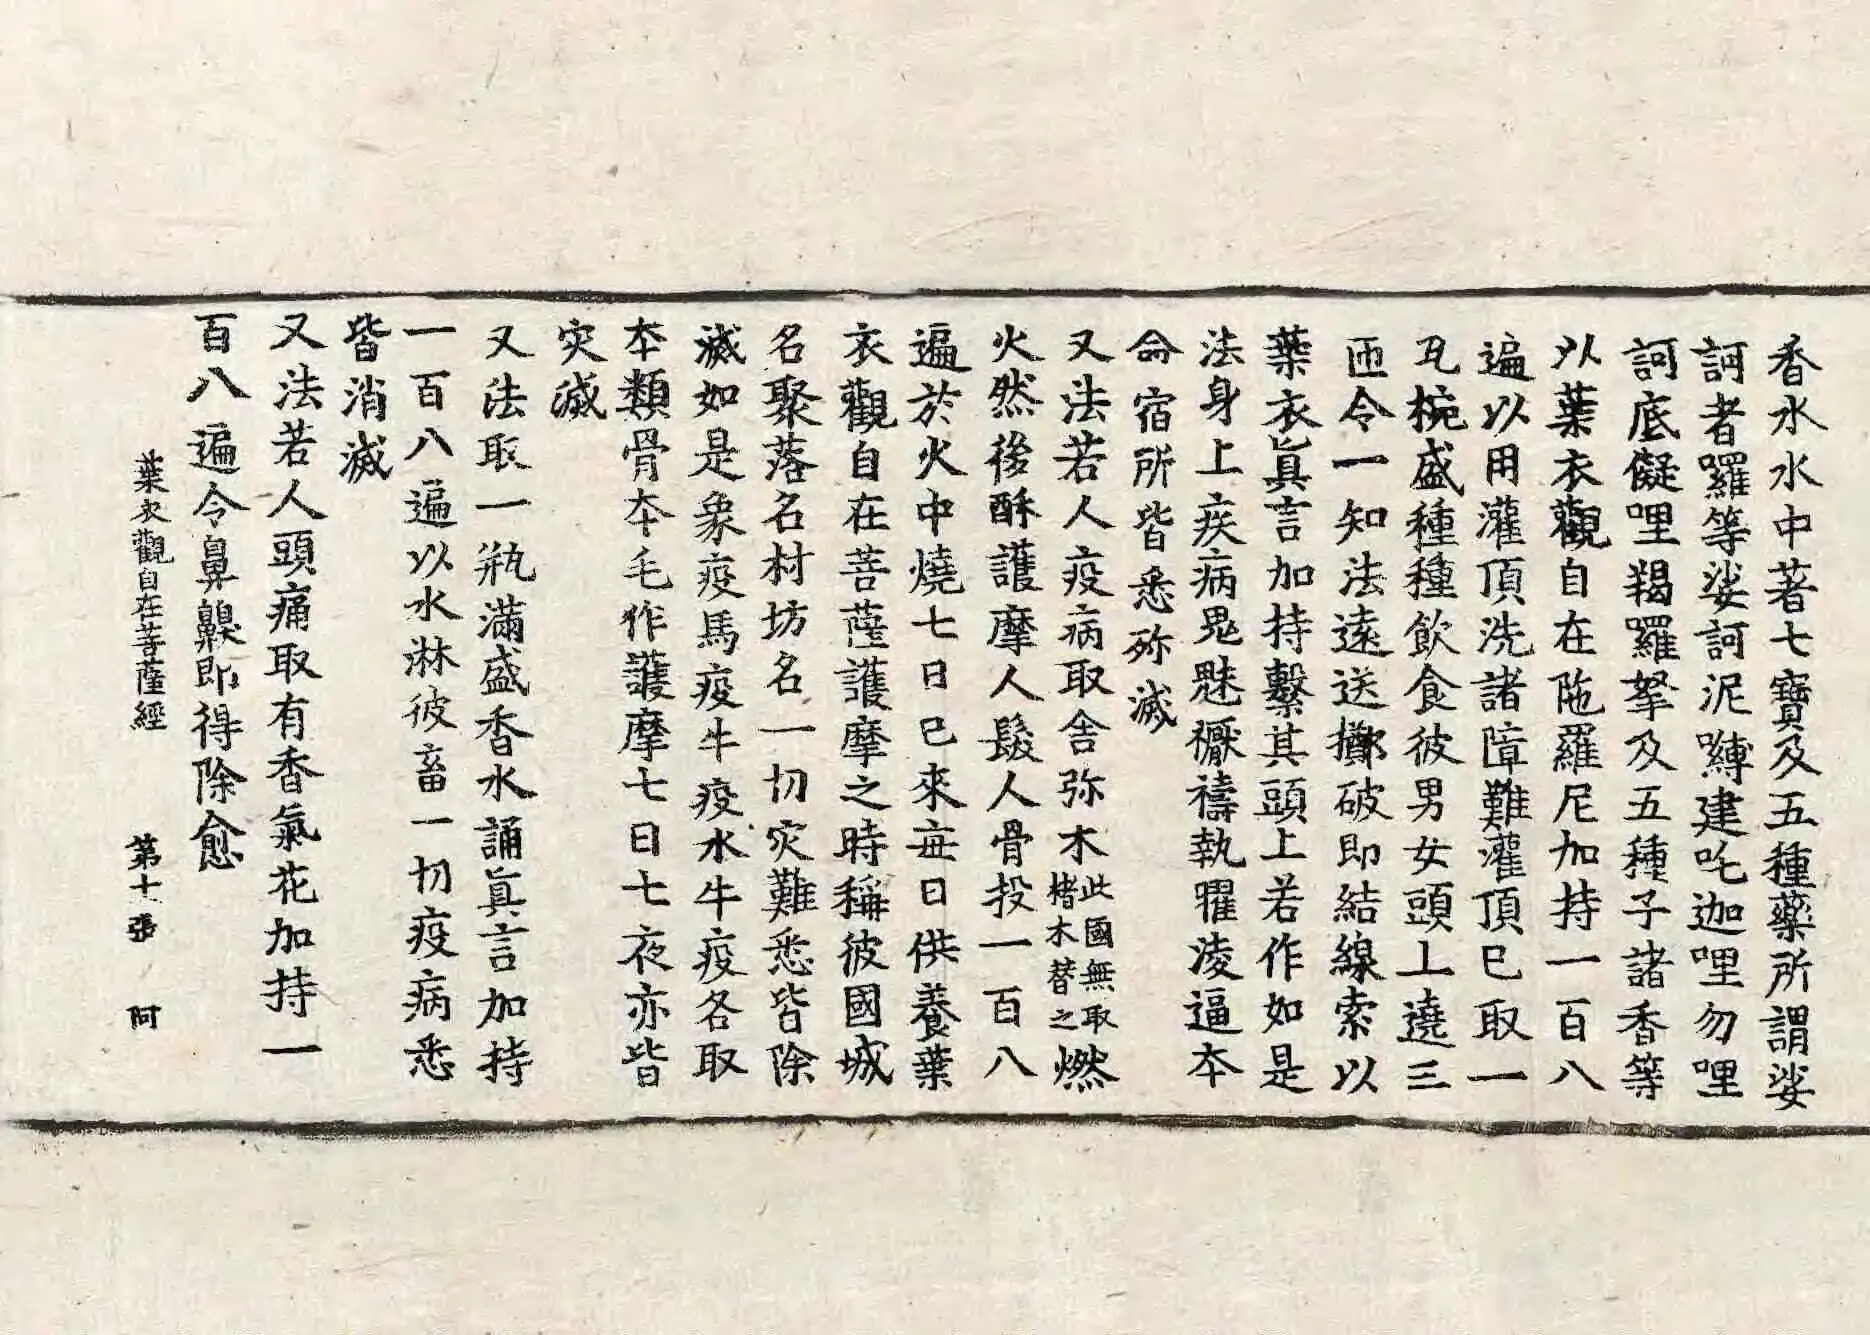 香水水中著七寶及五種藥所謂娑
訶者囉等娑訶泥嚩建吒迦哩勿哩
訶底儗哩羯羅拏及五種子諸香等
以葉衣觀自在陁羅尼加持一百八
遍以用灌頂洗諸障難灌頂已取一
瓦椀盛種種飲食彼男女頭上遶三
匝令一知法遠送擲破即結線索以
葉衣真言加持繫其頭上若作如是
法身上疾病鬼魅禳禱執曜淩逼夲
命宿所皆悉殄滅
又法若人疫病取舍弥木此國無取楮木替之燃
火然後酥護摩人髮人骨投一百八
遍於火中燒七日已來每日供養葉
衣觀自在菩薩護摩之時稱彼國城
名聚落名村坊名一切灾難悉皆除
滅如是象疫馬疫牛疫水牛疫各取
夲類骨夲毛作護摩七日七夜亦皆
灾滅
又法取一瓶滿盛香水誦真言加持
一百八遍以水淋彼畜一切疫病悉
皆消滅
又法若人頭痛取有香氣花加持一
百八遍令鼻齅即得除愈
葉衣觀自在菩薩經 第十張 阿